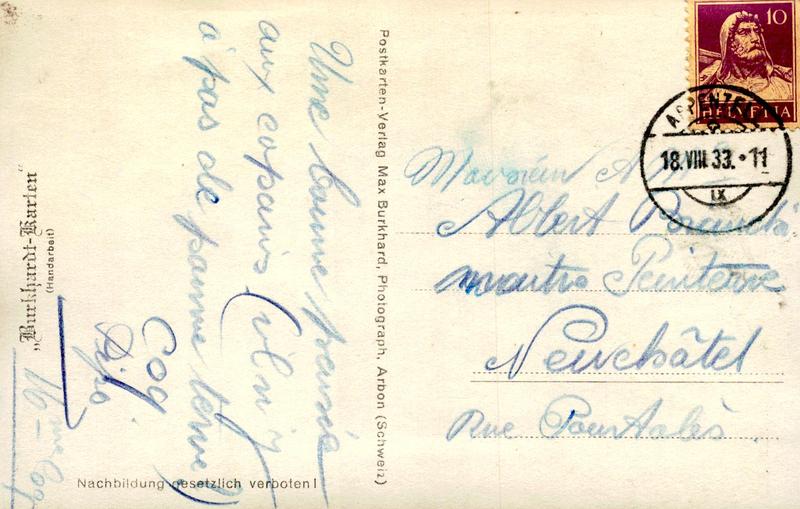 Une bonne pensée
aux copains (il n'y
a pas de pomme terre)
Cog
"Burkhardt-Karten"
(Handarbeit)
Nachbildung gesetzlich verboten!
Postkarten-Verlag Max Burkhard, Photograph, Arbon (Schweiz)
10
HELVETIA
APPENZELL
18.VIII.33.·11
IX
Monsieur
Albert
Neuchâtel
Rue Pourtalès.